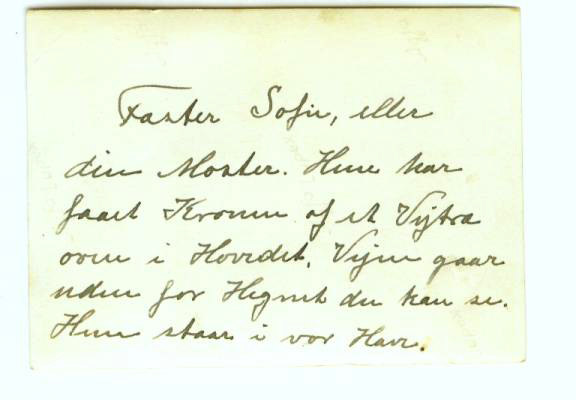 Faster Sofie, eller
din Moster. Hun har
faaet Kronen af et Vejtræ
oven i Hovedet. Vejen gaar
uden for Hegnet du kan se.
Hun staar i vor Have.